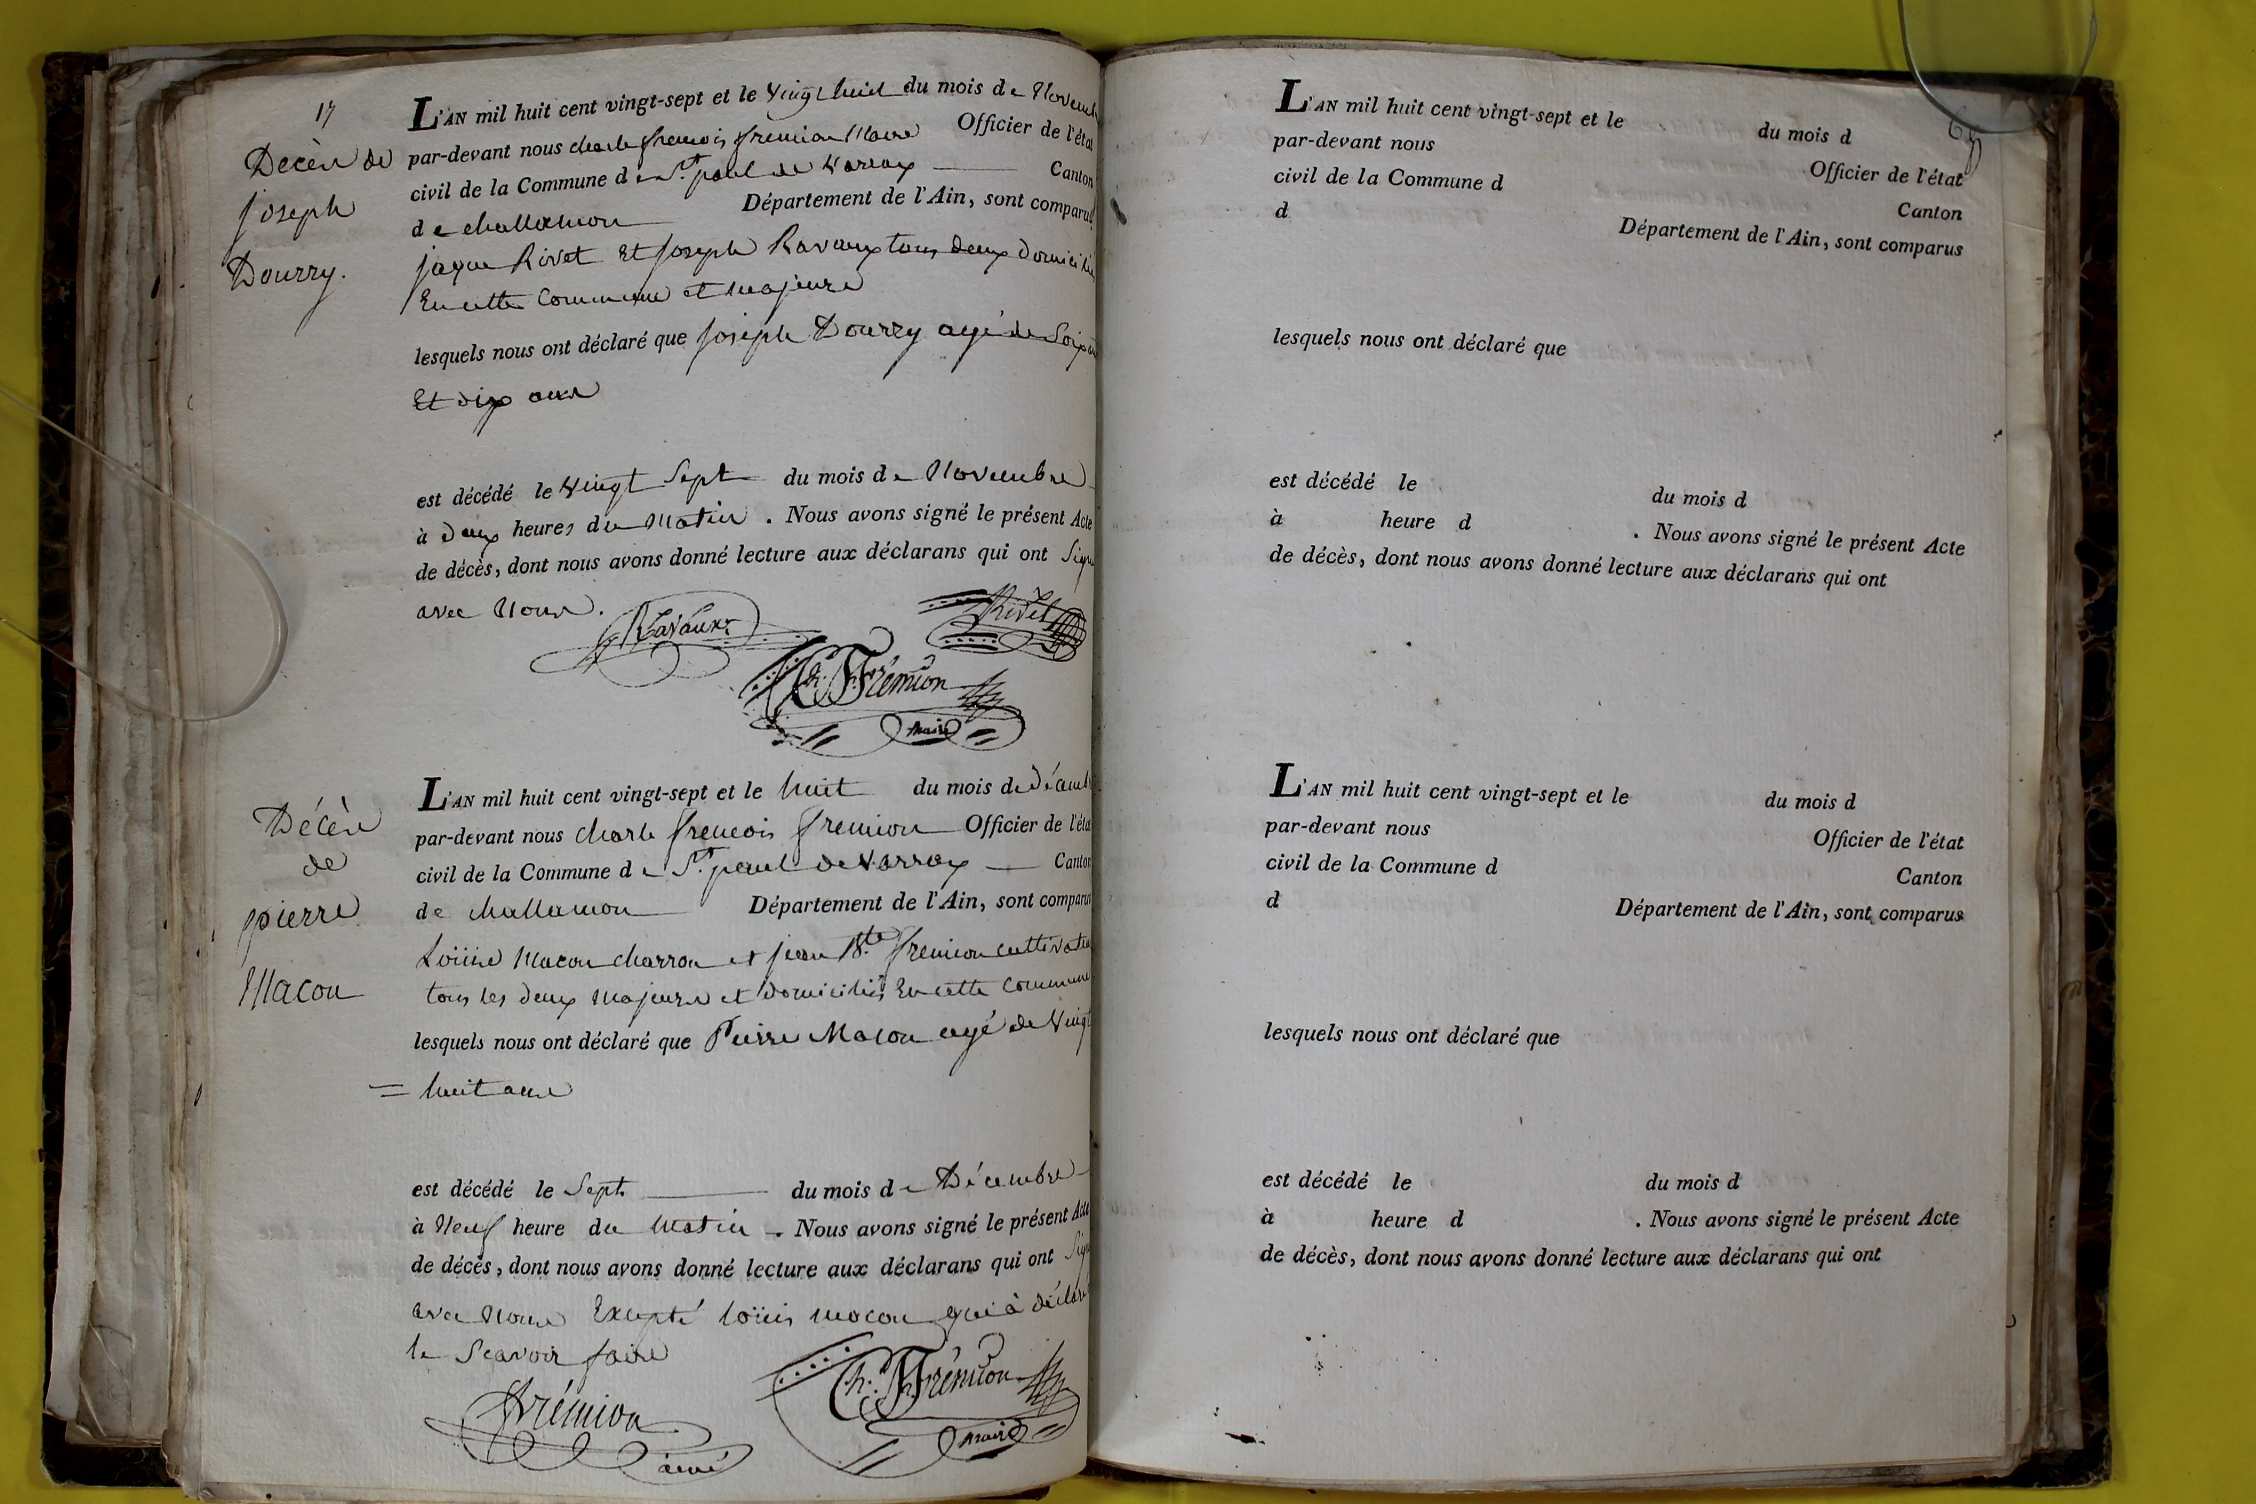 17
Decès de
joseph
Dourry.
L'AN mil huit cent vingt-sept et le vingt huit du mois de Novemb
par-devant nous charle frencois fremion Maire Officier de l'état
civil de la Commune de St. paul de Varax Canton
de challamon Département de l'Ain, sont comparus
jaque Rivet Et joseph Ravaux tous deux Domicilié
En cette Commune et Majeurs
lesquels nous ont déclaré que joseph Dourry agé de Soixan
Et dix ans
est décédé le vingt Sept du mois de Novembre
à deux heures du Matin. Nous avons signé le présent Acte
de décès, dont nous avons donné lecture aux déclarans qui ont Signé
avec Nous.
Ravaux
Rivet
Ch. F. Frémion
maire
Décès
de
pierre
Macon
L'AN mil huit cent vingt-sept et le huit du mois de Décemb
par-devant nous charle frencois fremion Officier de l'état
civil de la Commune de St. paul de Varrax Canton
de challamon Département de l'Ain, sont comparus
Loüis Macon charron et jean Bte. fremion cultivateu
tous les deux Majeurs et domiciliés En cette Commune
lesquels nous ont déclaré que Pierre Macon agé de Vingt
= huit ans
est décédé le Sept du mois de Décembre
à Neuf heure du Matin. Nous avons signé le présent Acte
de décès, dont nous avons donné lecture aux déclarans qui ont Signé
avec Nous Excepté loüis macon qui à déclaré
le Scavoir faire
frémion
ainé
Ch. F. Frémion
maire
L'AN mil huit cent vingt-sept et le du mois d
par-devant nous Officier de l'état
civil de la Commune d Canton
d Département de l'Ain, sont comparus
lesquels nous ont déclaré que
est décédé le du mois d
à heure d . Nous avons signé le présent Acte
de décès, dont nous avons donné lecture aux déclarans qui ont
L'AN mil huit cent vingt-sept et le du mois d
par-devant nous Officier de l'état
civil de la Commune d Canton
d Département de l'Ain, sont comparus
lesquels nous ont déclaré que
est décédé le du mois d
à heure d . Nous avons signé le présent Acte
de décès, dont nous avons donné lecture aux déclarans qui ont